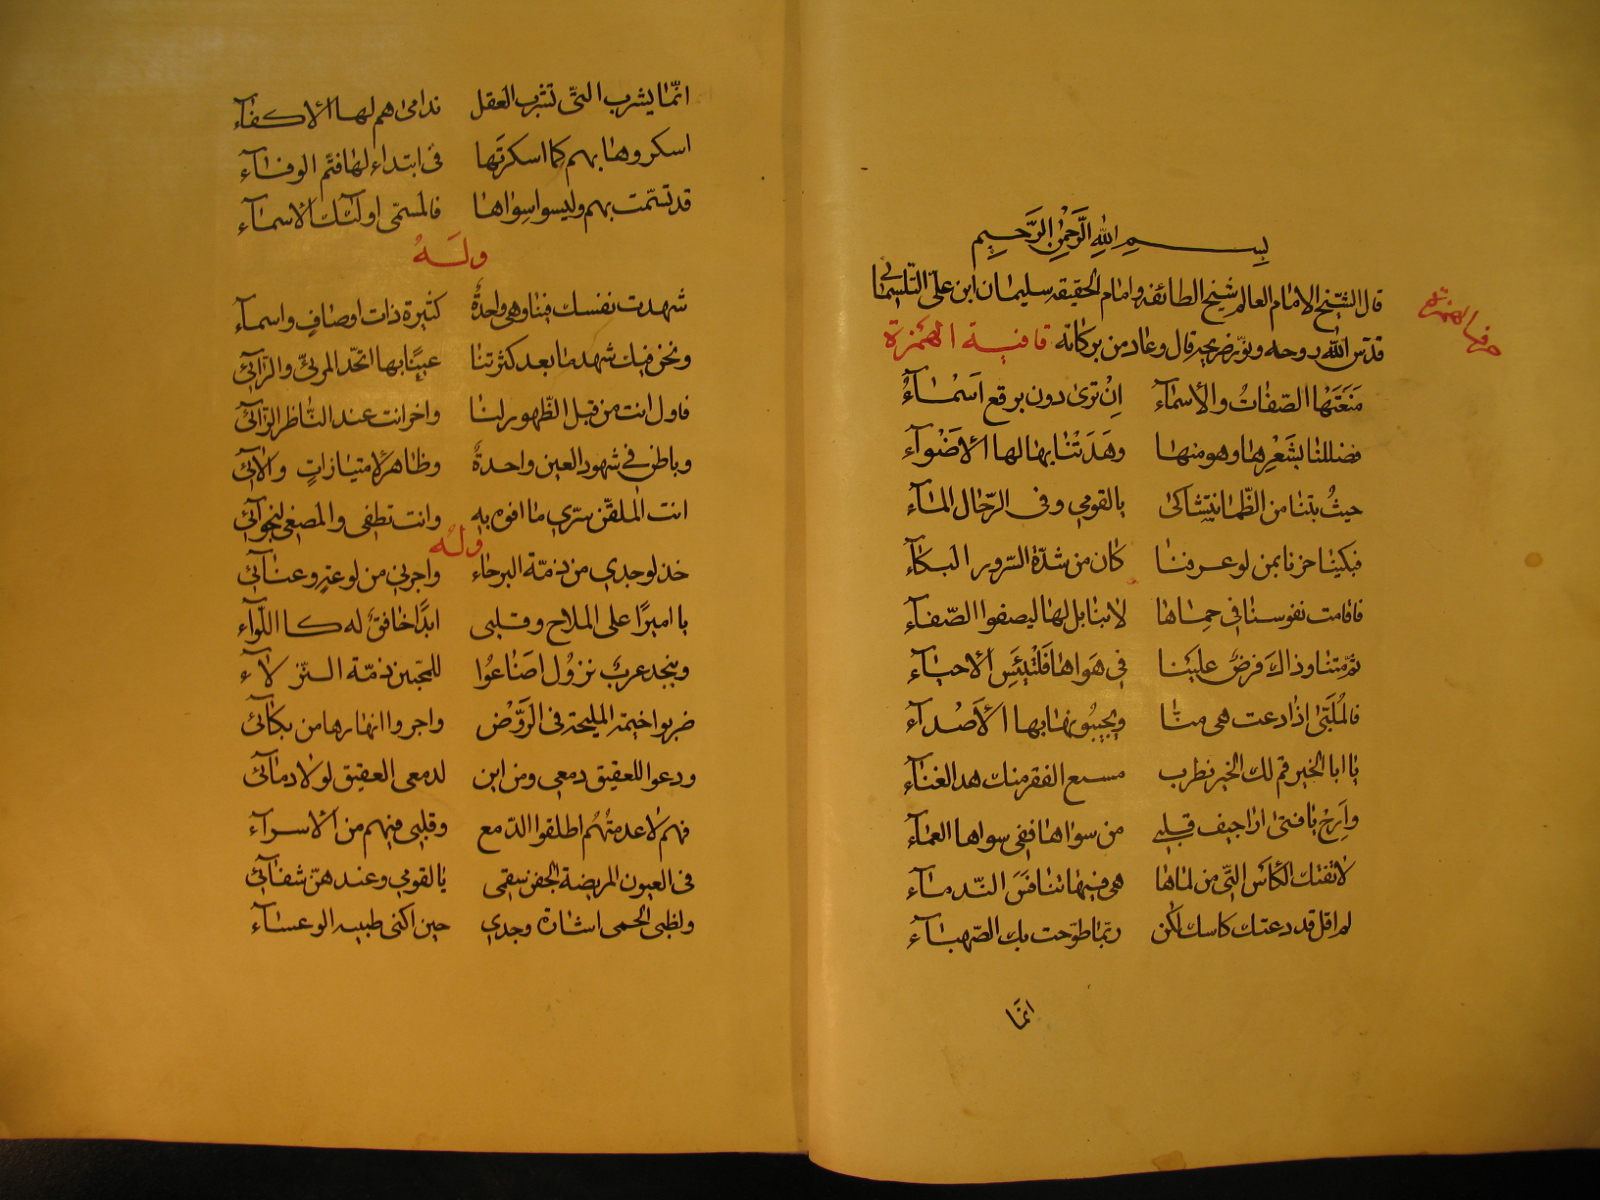 بِسْمِ اللهِ الرَّحْمٰنِ الرَّحِيمِ
قال الشّيخ الامام العالم شيخ الطائفه وامام الحقيقه سليمان ابن علىّ التّلسمانى
قدّس اللّٰه روحه ونوّر ضريحه قال وعاد من بركاته قافية الهَمْزة
حرف الهمزة
مَنَعَتْهَا الصّفاتُ والأسماء اِنْ ترىٰ دون برقع اَسْمَآءُ
ضللنا بشَعْرِها وهو منها وهَدَتْنا بها لها الأضْوآء
حيثُ بتنا من الظّما نتشاكى يالقومي وفى الرّحال المآء
فبكينا حزنا بمن لو عرفنا كان من شدّة السّرور البكآء
فاقامت نفوسنا في حِماها لا بنا بل لها ليصفوا الصّفآء
ثمّ متنا وذاك فرضٌ علينا في هَواها فَلْتَيْئَسِ الأحيآء
فالمُلَبّى اذا دعت هى منّا ويجيبُونها بها الأصْدآء
يا ابا الخير قم لك الخير نطرب مسمع الفقر منك هذ الغنآء
وارِحْ يا فتىٰ اراجيف قلبي من سواها ففى سواها العمآء
لا تفتك الكأس التّى من لماها هى فيها تنافَسَ النّدمآء
لم اقل قد دعتك كاسك لكن ربّما طوّحت بك الصّهبآء
انّما
انّما يشرب التىّ تشرب العقل ندامىٰ هم لها الأكفآء
اسكروها بهم كما اسكرتها فى ابتداء لها فتمّ الوفآء
قد تسمّت بهم وليسوا سِواها فالمسمّى اولٓئك الأسمآء
ولَهُ
شهدت نفسك فينا وهى واحدةٌ كثيرة ذات اوصافٍ واسمآء
ونحن فيك شهدنا بعد كثرتنا عينًا بها اتّحد المرئىّ والرّآئى
فاول انت من قبل الظّهور لنا واخر انت عند النّاظر الرّآئى
وباطن في شهود العين واحدةٌ وظاهر لامتيازاتٍ والآئى
انت الملقّن سرّي ما افوه به وانت تطفى والمصغى لنجوآئى
ولَهُ
خذ لوجدي من ذمّة البرحاء واجرنى من لوعتى وعنآئى
يا اميرًا على الملاح وقلبى ابدًا خافقٌ له كا اللّوآء
وبنجد عربٌ نزولٌ اضاعُوا للمحبّين ذمّة النّزلآء
ضربوا خيمة المليحة فى الرّوْض واجروا انهارها من بكآئى
ودعوا للعقيق دمعي ومن اين لدمعى العقيق لولا دمآئى
فهم لا عدمتُهُم اطلقوا الدّمع وقلبي فيهم من الأسرآء
فى العيون المريضة الجفن سقمى يا لقومي وعند هنّ شفآئى
ولظبى الحمى اشارة وجدي حين اكنى طبيبه الوعسآء